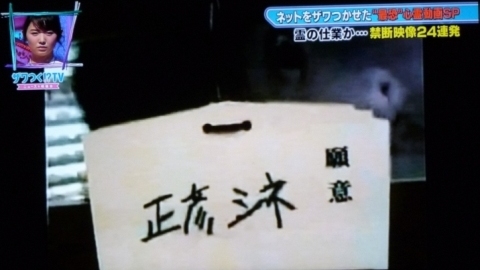 ネットをザワつかせた"最恐"心霊動画SP
霊の仕業か…禁断映像24連発
ザワつくTV
願意
正彦 シネ